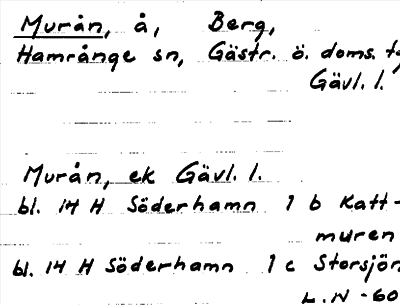 Murån, å, Berg,
Hamrånge sn, Gästr. ö. doms.
Gävl. l.
Murån, ek Gävl. l.
bl. 14 H Söderhamn 1 b Katt-
muren
bl. 14 H Söderhamn 1 c Storsjön
L.N -60